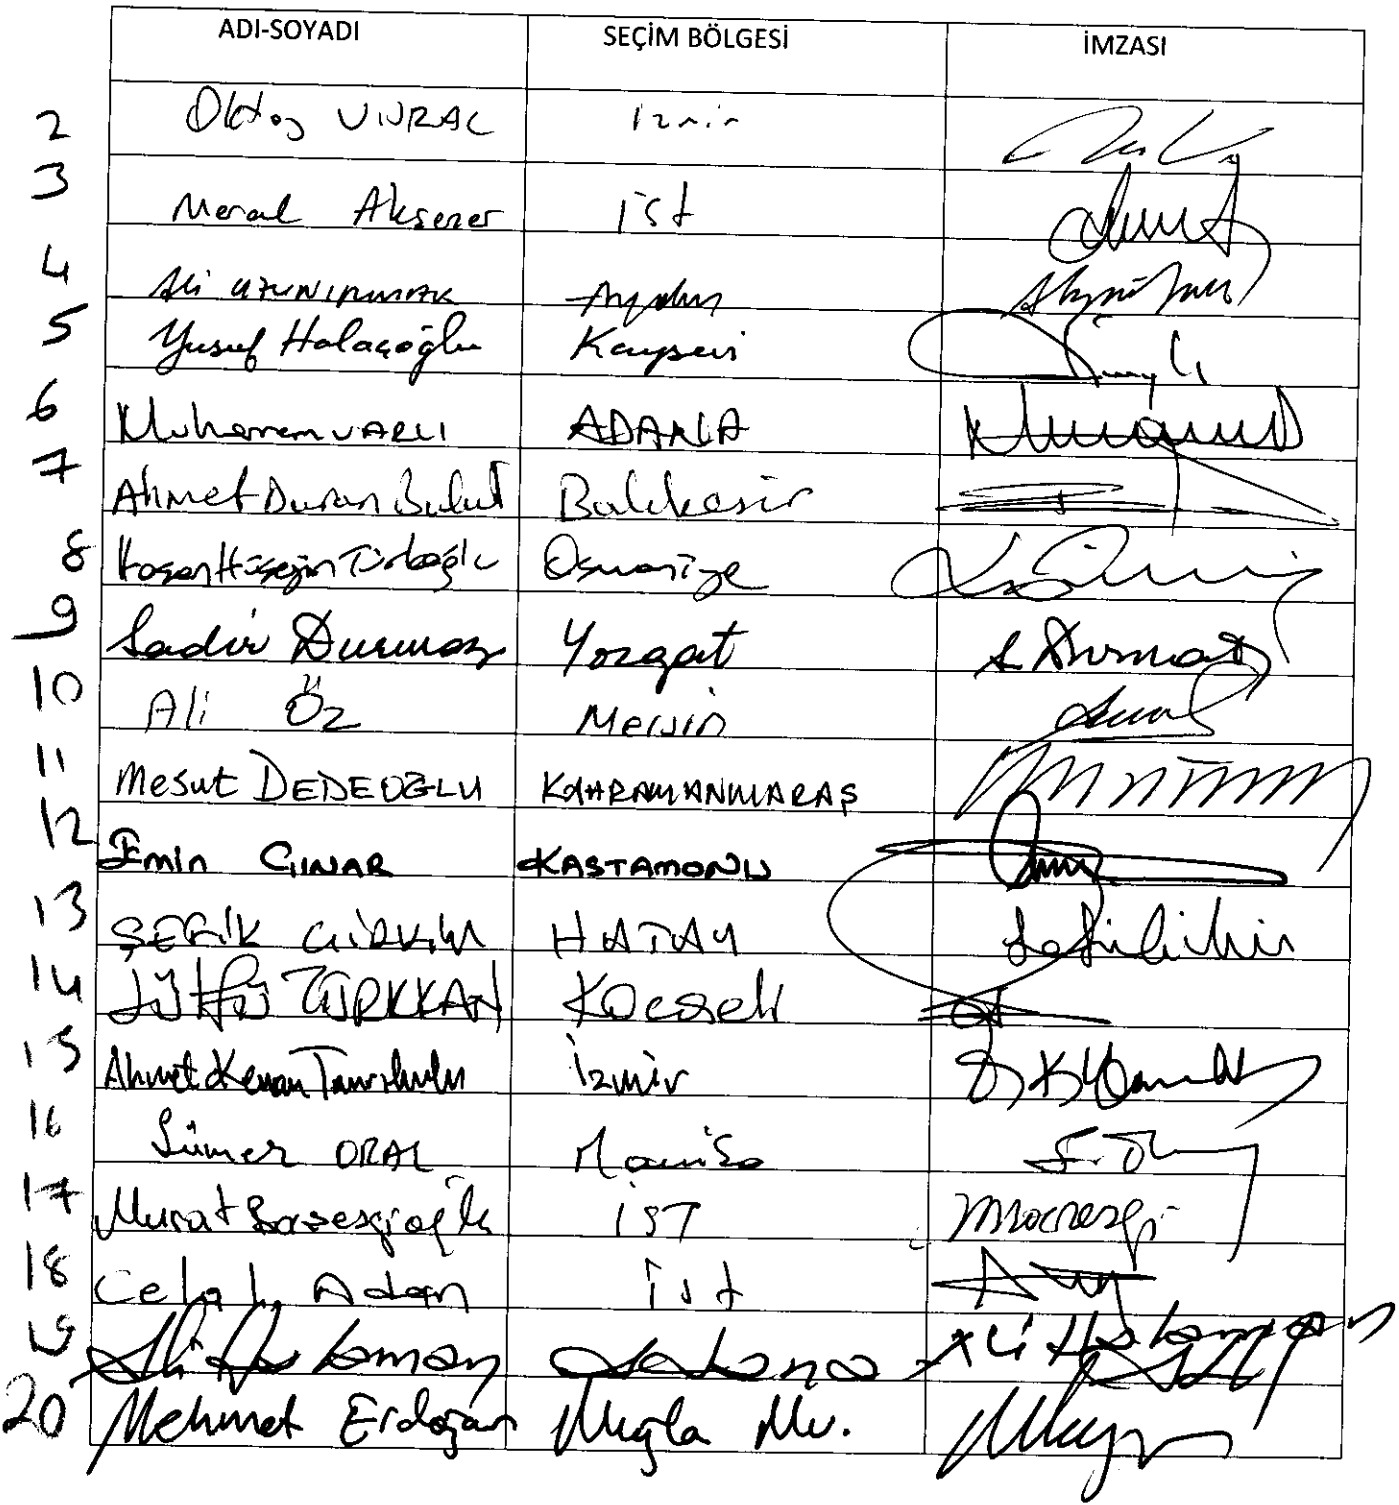 ADI-SOYADI SEÇİM BÖLGESİ İMZASI
2 Oktay VURAL İzmir
3 Meral Akşener İst
4 Ali UZUNIRMAK Aydın
5 Yusuf Halaçoğlu Kayseri
6 Muharrem VARLI ADANA
7 Ahmet Duran Bulut Balıkesir
8 Hasan Hüseyin Türkoğlu Osmaniye
9 Sadir Durmaz Yozgat S. Durmaz
10 Ali Öz Mersin
11 Mesut DEDEOĞLU KAHRAMANMARAŞ
12 Emin ÇINAR KASTAMONU
13 ŞEFİK ÇİRKİN HATAY
14 Lütfü TÜRKKAN Kocaeli
15 Ahmet Kenan Tanrıkulu İzmir
16 Sümer ORAL Manisa
17 Murat Başesgioğlu İST
18 Celal Adan İst
19 Ali Halaman Adana Ali Halaman
20 Mehmet Erdoğan Muğla Mv.